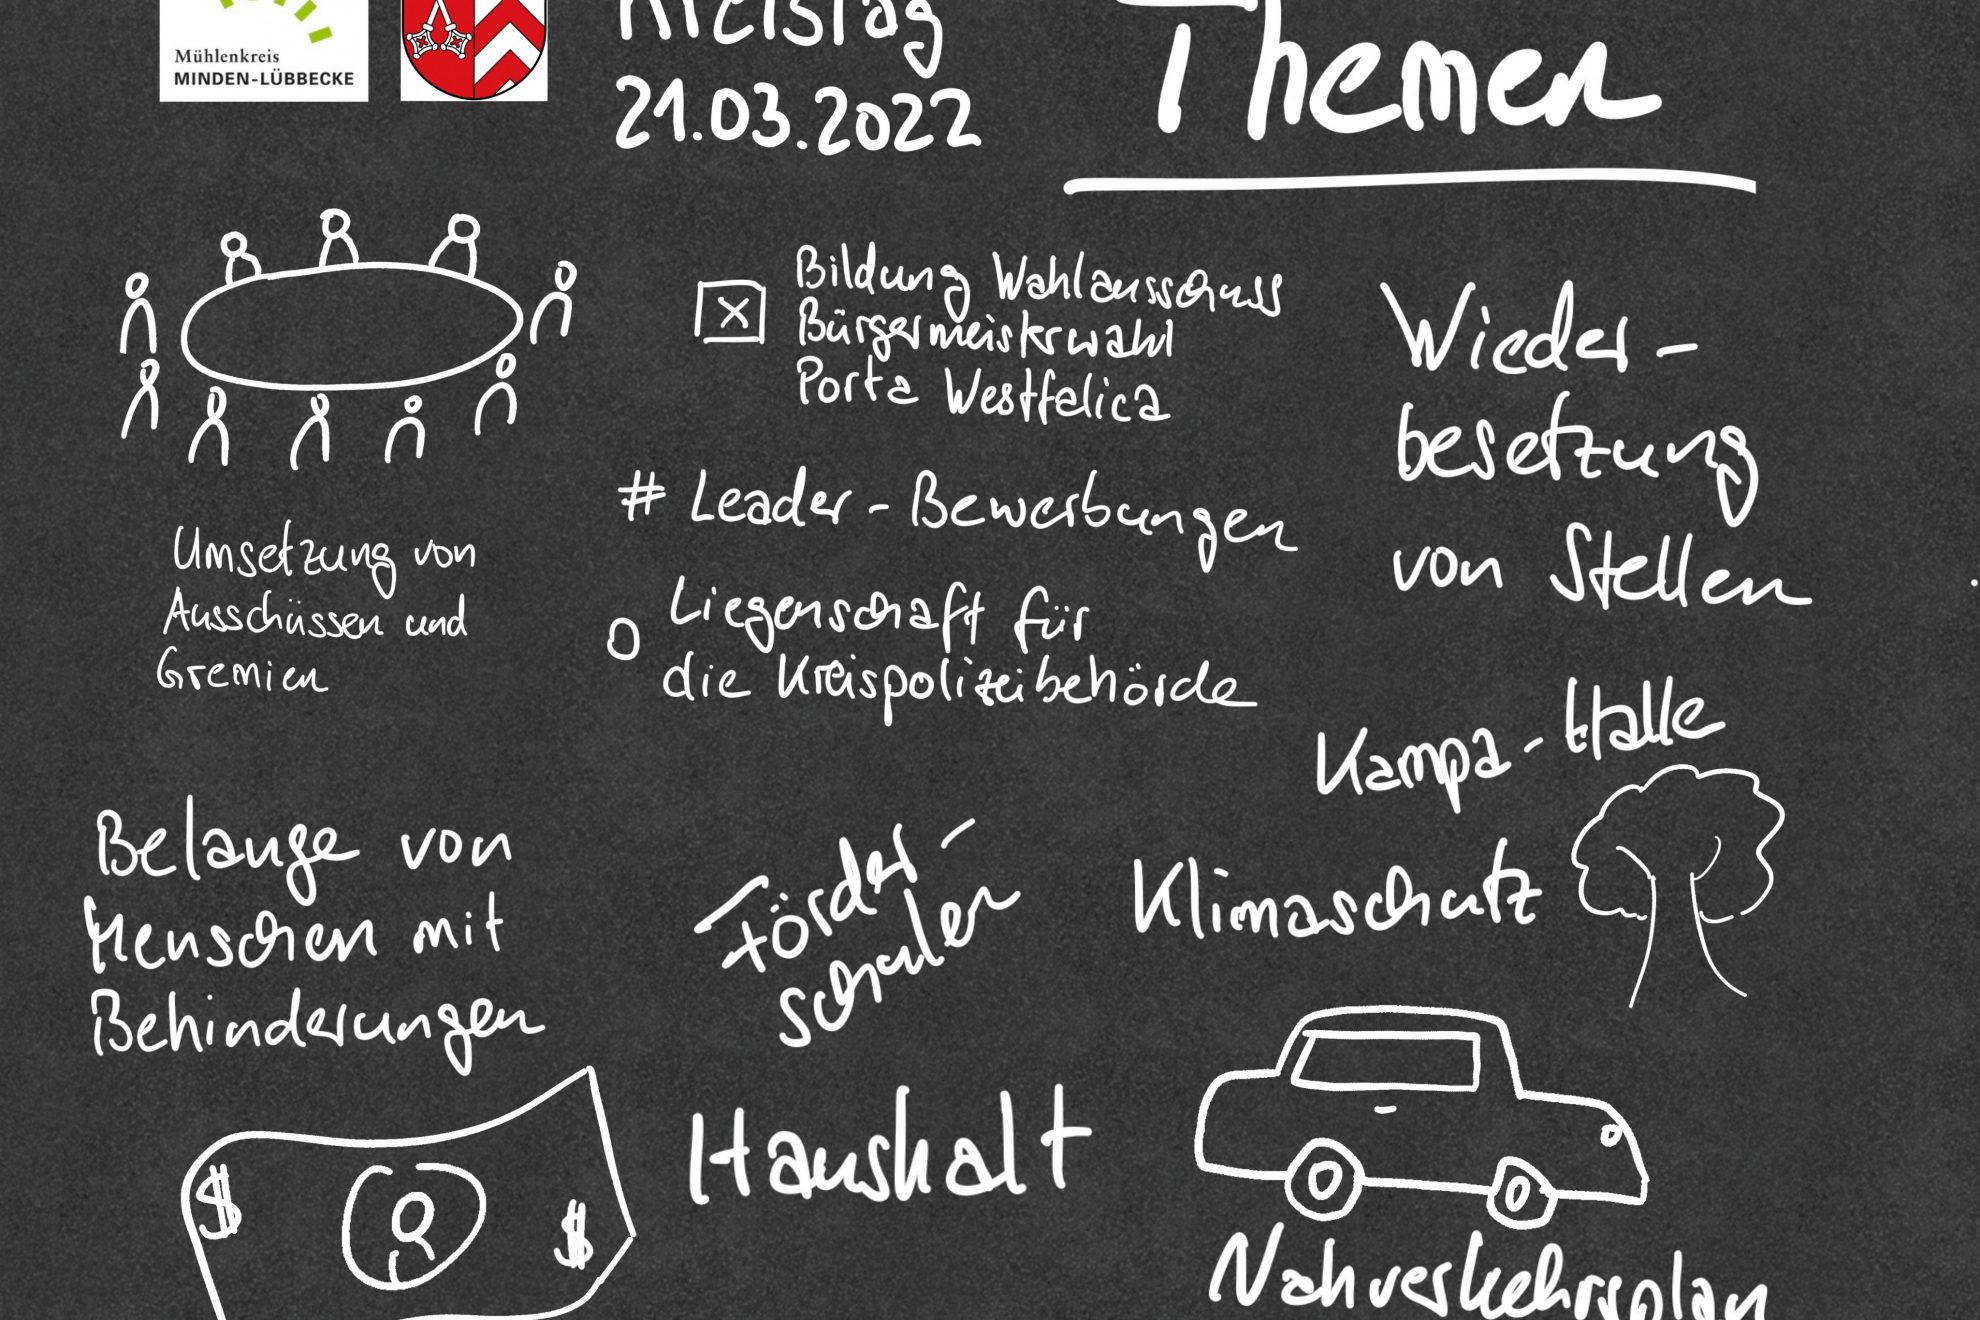 Mühlenkreis
MINDEN-LÜBBECKE
Kreistag
21.03.2022
Themen
Umsetzung von
Ausschüssen und
Gremien
x Bildung Wahlausschuss
Bürgermeisterwahl
Porta Westfalica
# Leader-Bewerbungen
O Liegenschaft für
die Kreispolizeibehörde
Wieder-
besetzung
von Stellen
Kampa-Halle
Belange von
Menschen mit
Behinderungen
Förder-
schulen
Klimaschutz
Haushalt
$ $
Nahverkehrsplan